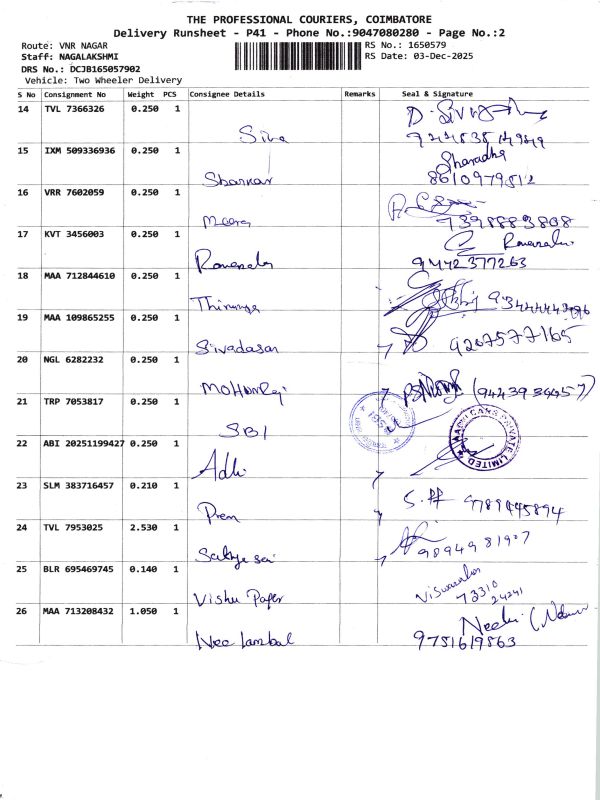 THE PROFESSIONAL COURIERS, COIMBATORE
Delivery Runsheet - P41 - Phone No.:9047080280 - Page No.:2
Route: VNR NAGAR
RS No.: 1650579
Staff: NAGALAKSHMI
RS Date: 03-Dec-2025
DRS No.: DCJB165057902
Vehicle: Two Wheeler Delivery
S No Consignment No Weight PCS Consignee Details Remarks Seal & Signature
14 TVL 7366326 0.250 1
Siva
15 IXM 509336936 0.250 1
Sharadha
Shankar 8610979512
16 VRR 7602059 0.250 1
Meera 7398883808
17 KVT 3456003 0.250 1
9442377263
18 MAA 712844610 0.250 1
19 MAA 109865255 0.250 1
Sivadasan 9207577165
20 NGL 6282232 0.250 1
Mohanraj
21 TRP 7053817 0.250 1
SBI
22 ABI 20251199427 0.250 1
PRIVATE LIMITED
Adhi
23 SLM 383716457 0.210 1
Prem
24 TVL 7953025 2.530 1
Sathya sai 9894981907
25 BLR 695469745 0.140 1
Vishu Paper
73310
24241
26 MAA 713208432 1.050 1
9751619863